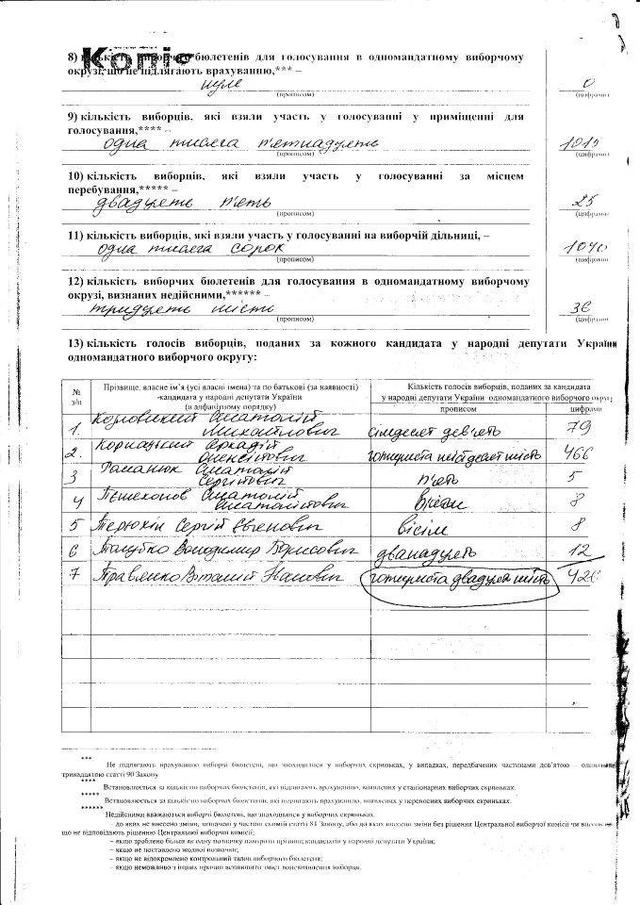 Копі
8) кількість виборчих бюлетенів для голосування в одномандатному виборчому
окрузі, що не підлягають врахуванню,*** –
нуль
0
(прописом)
(цифрами
9) кількість виборців, які взяли участь у голосуванні у приміщенні для
голосування,**** –
одна тисяча п'ятнадцять
1015
(прописом)
(цифрами
10) кількість виборців, які взяли участь у голосуванні за місцем
перебування,***** –
двадцять п'ять
25
(прописом)
(цифрами
11) кількість виборців, які взяли участь у голосуванні на виборчій дільниці, –
одна тисяча сорок
1040
(прописом)
(цифрами
12) кількість виборчих бюлетенів для голосування в одномандатному виборчому
окрузі, визнаних недійсними,****** –
тридцять шість
36
(прописом)
(цифрами
13) кількість голосів виборців, поданих за кожного кандидата у народні депутати України
одномандатного виборчого округу:
№ з/п
Прізвище, власне ім'я (усі власні імена) та по батькові (за наявності)
кандидата у народні депутати України
(в алфавітному порядку)
Кількість голосів виборців, поданих за кандидата
у народні депутати України одномандатного виборчого округу
прописом
цифрами
1. Анатолій Михайлович сімдесят дев'ять 79
2. Корнацький Аркадій Олексійович чотириста шістдесят шість 466
3 Романюк Анатолій Сергійович п'ять 5
4 Анатолійович вісім 8
5 Терьохін Сергій Євгенович вісім 8
6 Володимир Борисович дванадцять 12
7 Травянко Віталій Іванович чотириста двадцять шість 426
***
Не підлягають врахуванню виборчі бюлетені, що знаходилися у виборчих скриньках, у випадках, передбачених частинами дев'ятою –
тринадцятою статті 90 Закону
****
Встановлюється за кількістю виборчих бюлетенів, які підлягають врахуванню, виявлених у стаціонарних виборчих скриньках.
*****
Встановлюється за кількістю виборчих бюлетенів, які підлягають врахуванню, виявлених у переносних виборчих скриньках.
******
Недійсними вважаються виборчі бюлетені, що знаходилися у виборчих скриньках:
до яких не внесено зміни, зазначені у частині сьомій статті 81 Закону, або до яких внесено зміни без рішення Центральної виборчої комісії чи внесено
що не відповідають рішенню Центральної виборчої комісії;
– якщо зроблено більш як одну позначку навпроти прізвищ кандидатів у народні депутати України;
– якщо не поставлено жодної позначки;
– якщо не відокремлено контрольний талон виборчого бюлетеня;
– якщо неможливо з інших причин встановити зміст волевиявлення виборця.